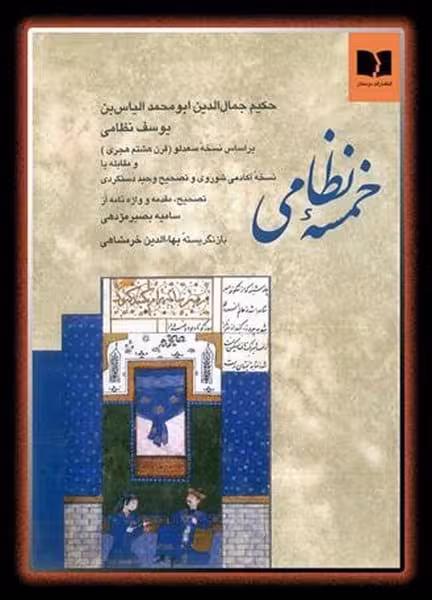 انتشارات دوستان
حکیم جمال‌الدین ابومحمد الیاس‌بن
یوسف نظامی
براساس نسخه سعدلو (قرن هشتم هجری)
و مقابله با
نسخه آکادمی شوروی و تصحیح وحید دستگردی
تصحیح، مقدمه و واژه نامه از
سامیه بصیر مژدهی
بازنگریستهٔ بهاءالدین خرمشاهی
خمسهٔ نظامی